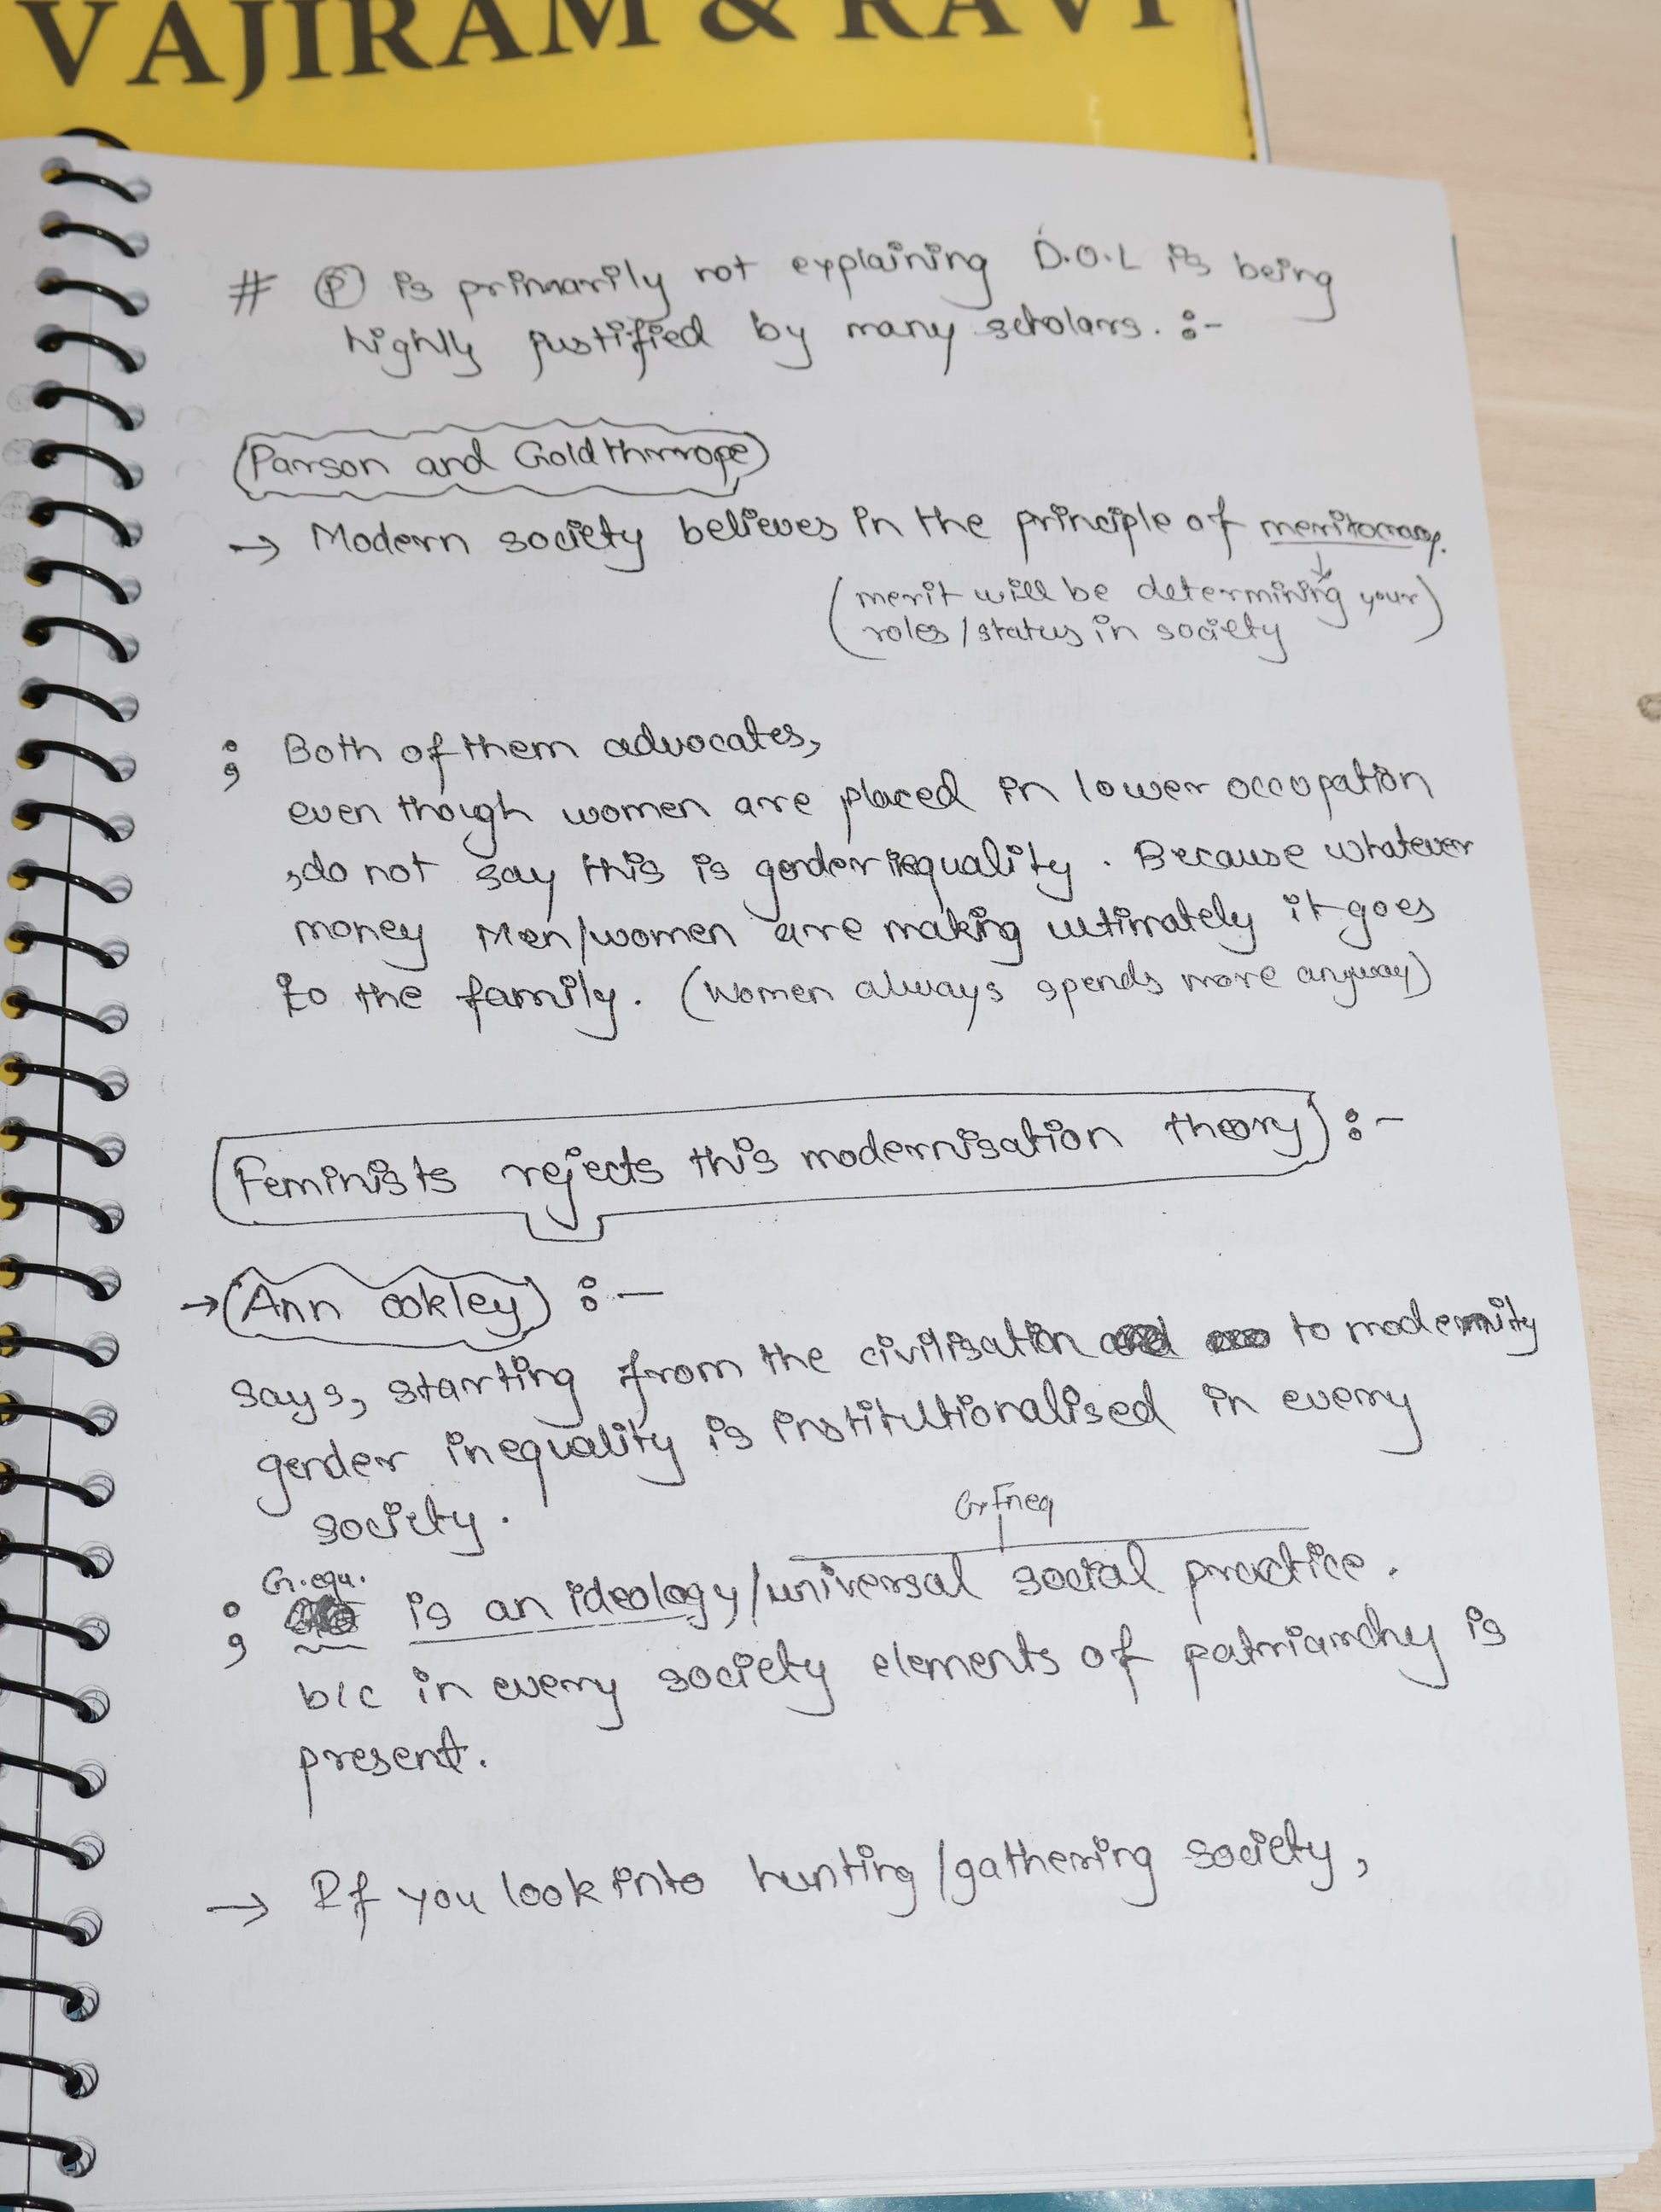 VAJIRAM & RAVI
# Ⓟ is primarily not explaining D.O.L is being
highly justified by many scholars. :-
Parson and Goldthrrope
→ Modern society believes in the principle of meritocracy.
(merit will be determining your
roles/status in society)
; Both of them advocates,
even though women are placed in lower occupation
,do not say this is gender inequality. Because whatever
money Men/women are making ultimately it goes
to the family. (Women always spends more anyway)
Feminists rejects this modernisation theory :-
→ Ann ookley :-
says, starting from the civilisation to modernity
gender inequality is institutionalised in every
society.
Gr Ineq
G. equ.
; is an ideology/universal social practice.
b/c in every society elements of patriarchy is
present.
→ If you look into hunting/gathering society,